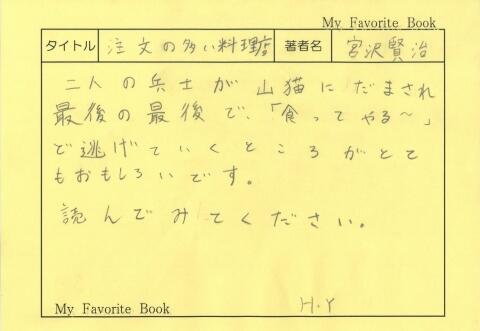 My Favorite Book
タイトル 注文の多い料理店 著者名 宮沢賢治
二人の兵士が山猫にだまされ
最後の最後で、「食ってやる〜」
で逃げていくところがとて
もおもしろいです。
読んでみてください。
My Favorite Book H.Y